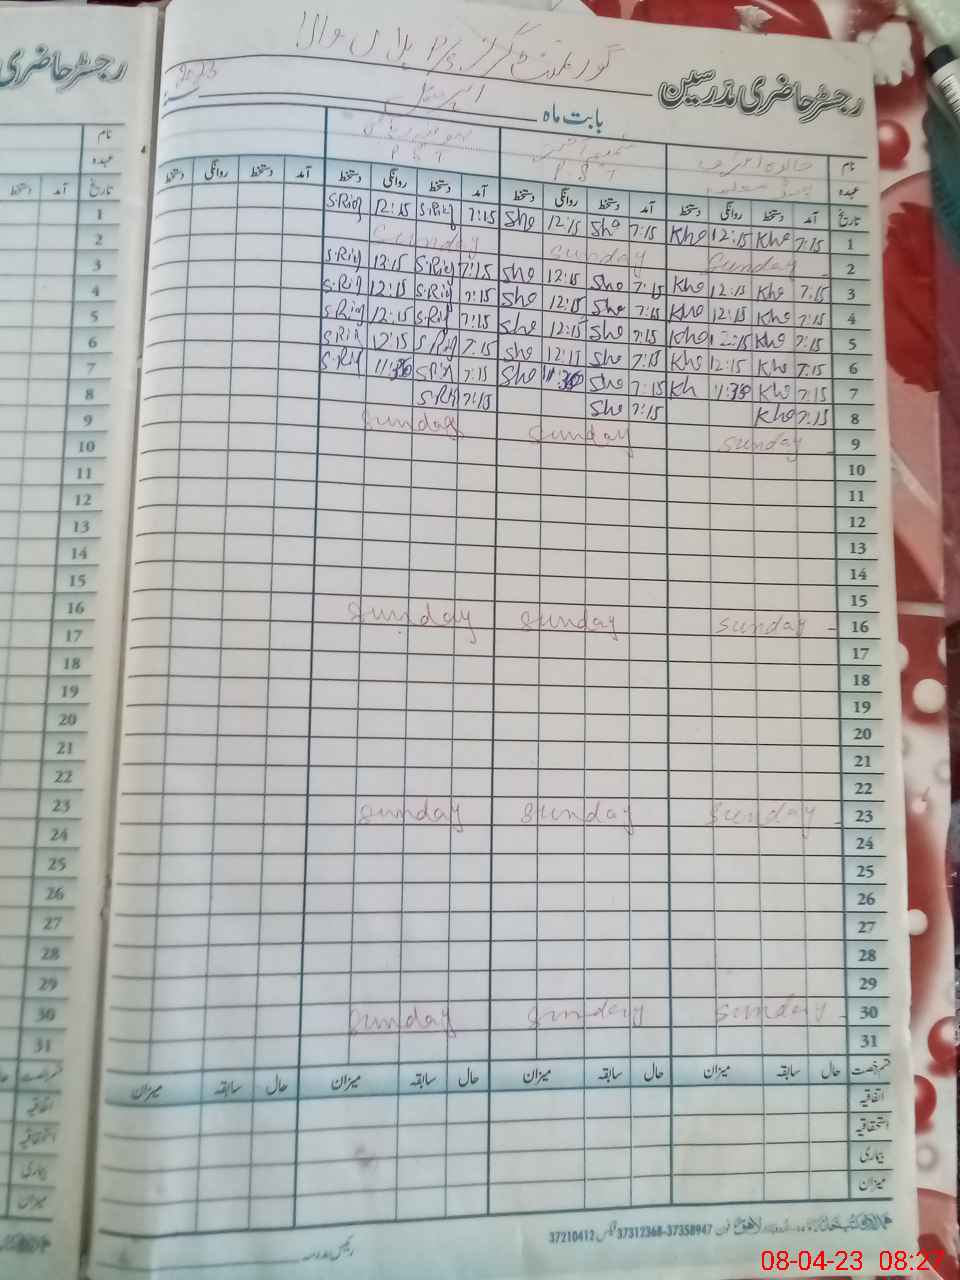 گورنمنٹ گرلز P/S
رجسٹر حاضری مدرسین
بابت ماہ اپریل 2023
نام
عہدہ P.S.T P.S.T
تاریخ آمد دستخط روانگی دستخط آمد دستخط روانگی دستخط آمد دستخط روانگی دستخط آمد دستخط روانگی دستخط
1 7:15 Khe 12:15 Khe 7:15 She 12:15 She 7:15 S.Rif 12:15 S.Rif
2 Sunday Sunday Sunday
3 7:15 Khe 12:15 Khe 7:15 She 12:15 She 7:15 S.Rif 12:15 S.Rif
4 7:15 Khe 12:15 Khe 7:15 She 12:15 She 7:15 S.Rif 12:15 S.Rif
5 7:15 Khe 12:15 Khe 7:15 She 12:15 She 7:15 S.Rif 12:15 S.Rif
6 7:15 Khe 12:15 Khe 7:15 She 12:15 She 7:15 S.Rif 12:15 S.Rif
7 7:15 Khe 11:30 Kh 7:15 She 11:30 She 7:15 S.Rif 11:30 S.Rif
8 7:15 Khe 7:15 She 7:15 S.Rif
9 Sunday Sunday Sunday
10
11
12
13
14
15
16 Sunday Sunday Sunday
17
18
19
20
21
22
23 Sunday Sunday Sunday
24
25
26
27
28
29
30 Sunday Sunday Sunday
31
قسم رخصت حال سابقہ میزان حال سابقہ میزان حال سابقہ میزان حال سابقہ میزان
اتفاقیہ
استحقاقیہ
بیماری
میزان
لاہور فون 37358947-37312368 فیکس 37210412
رئیس مدرسہ
رجسٹر حاضری
نام
عہدہ
تاریخ آمد دستخط
1
2
3
4
5
6
7
8
9
10
11
12
13
14
15
16
17
18
19
20
21
22
23
24
25
26
27
28
29
30
31
قسم رخصت حال
اتفاقیہ
استحقاقیہ
بیماری
میزان
08-04-23 08:27